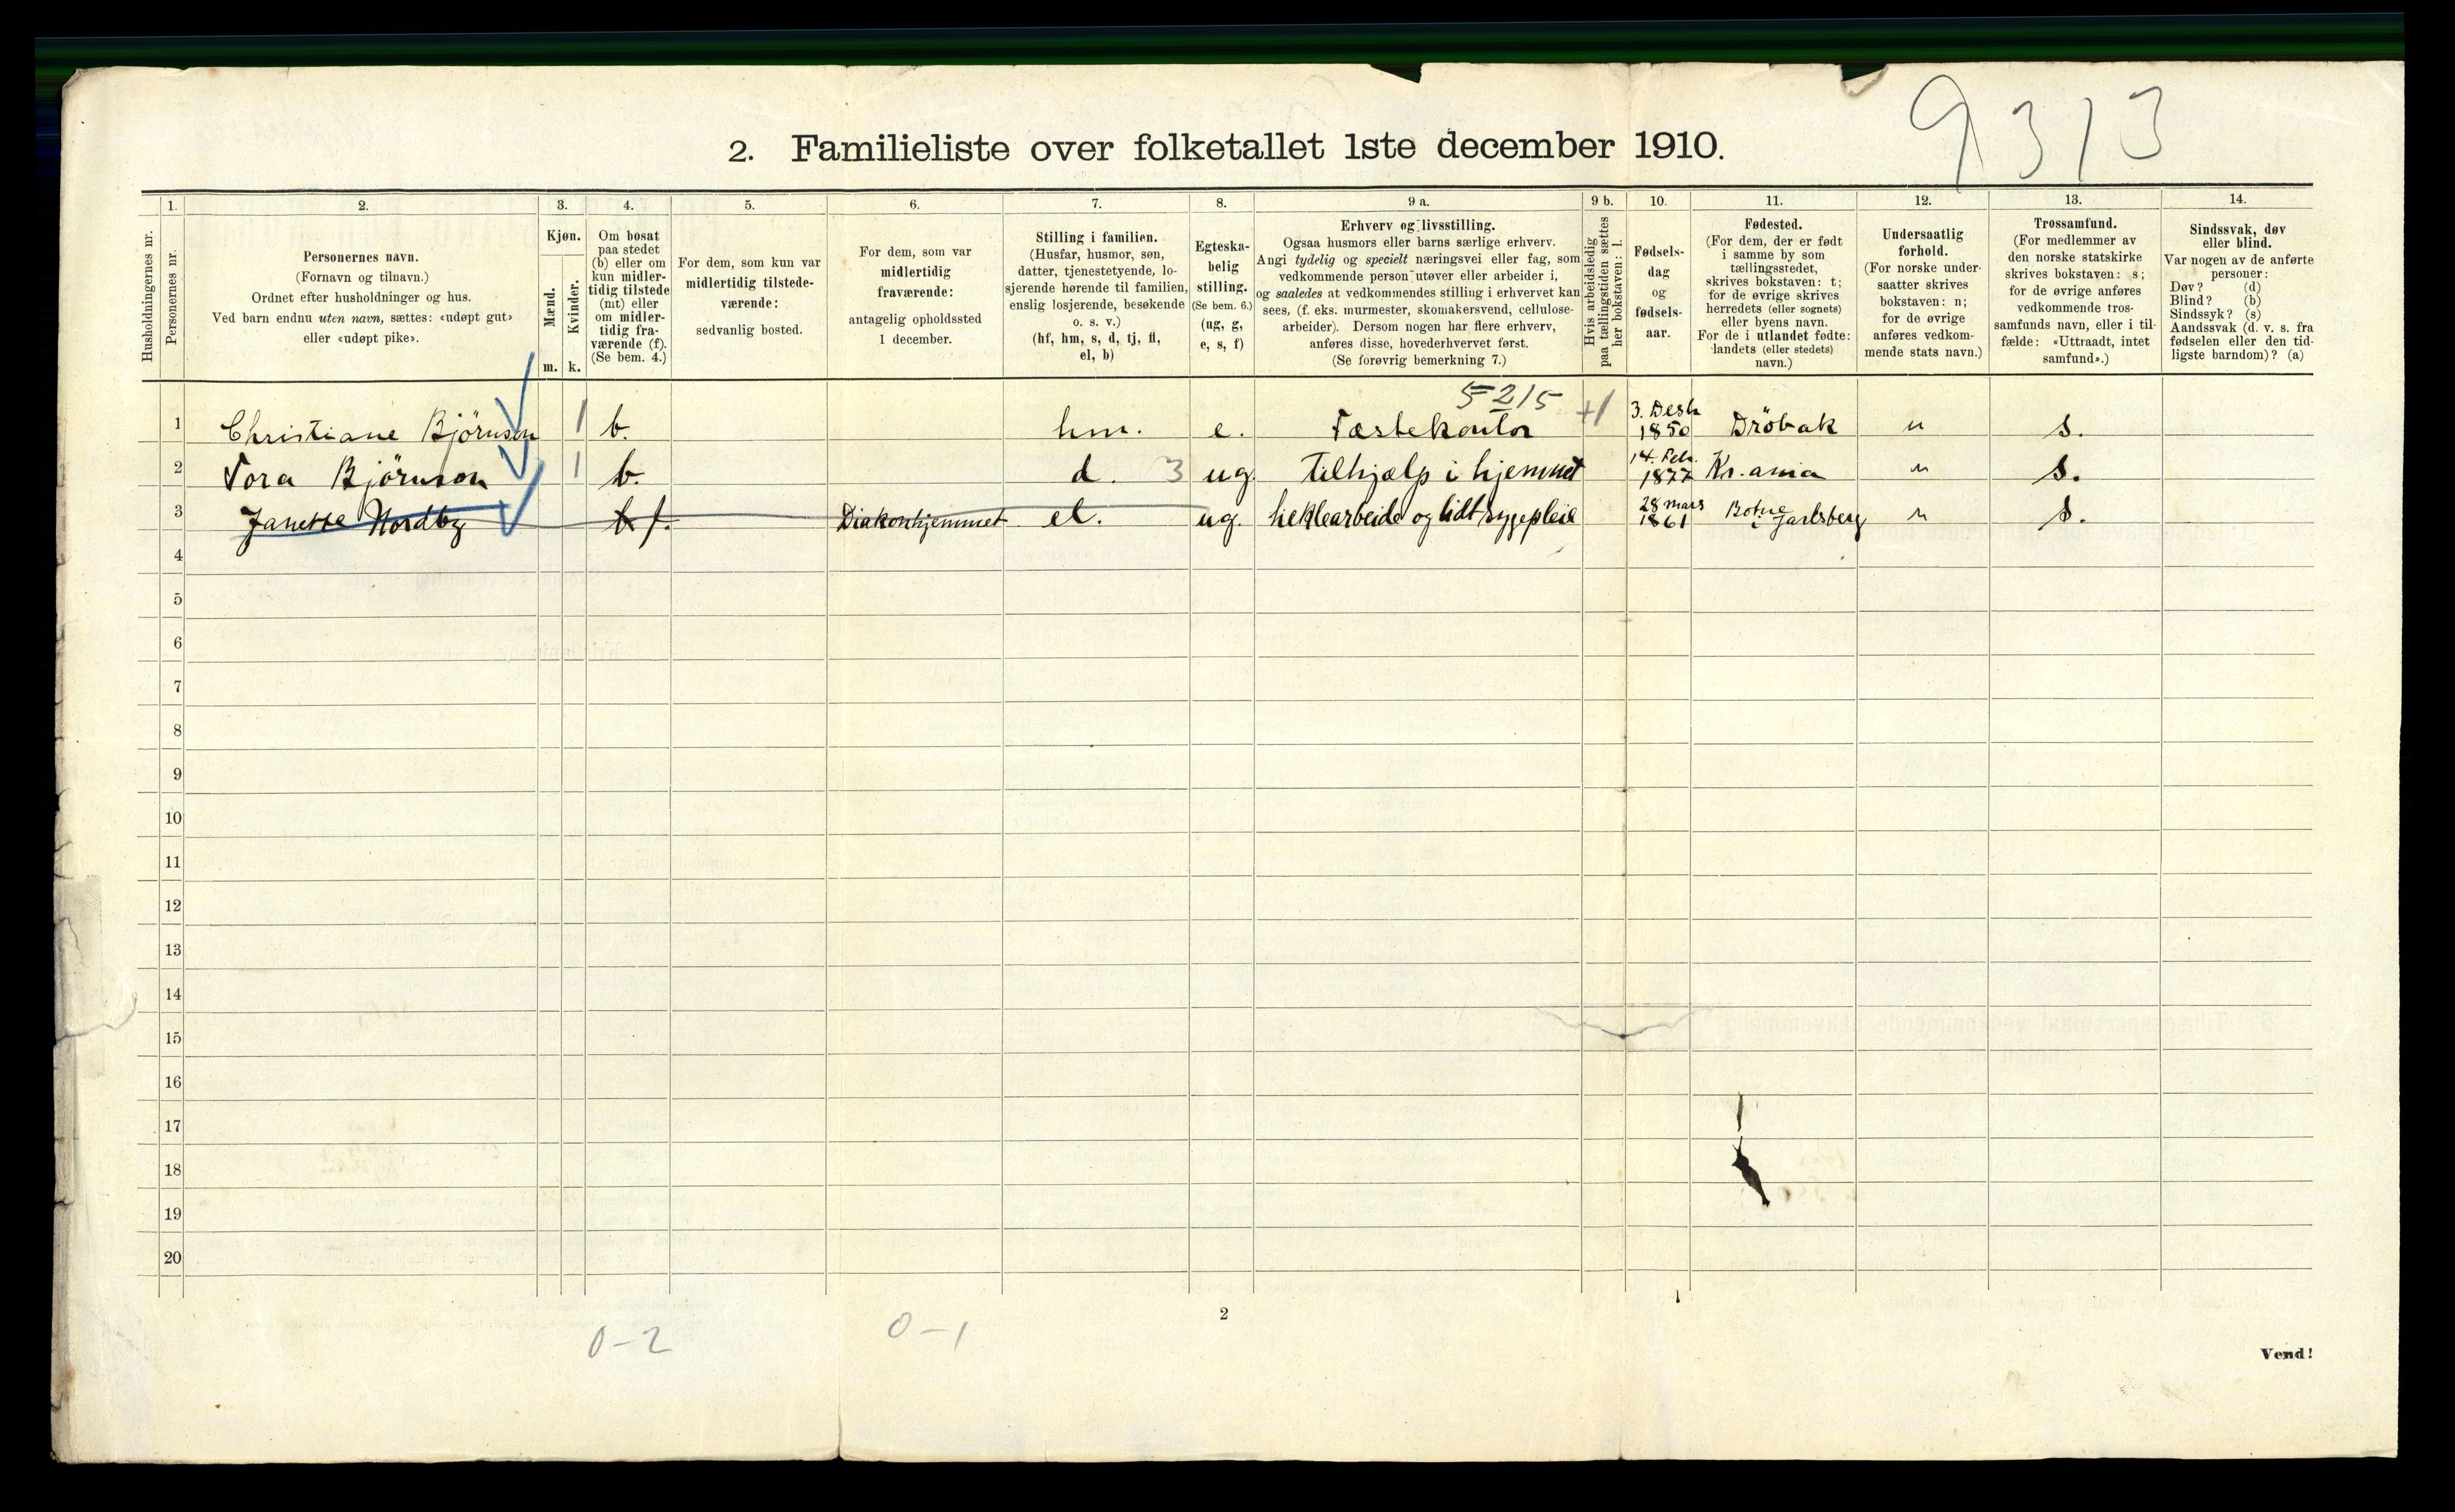 9313
2. Familieliste over folketallet 1ste december 1910.
Husholdningernes nr.
1.
Personernes nr.
2.
Personernes navn.
(Fornavn og tilnavn.)
Ordnet efter husholdninger og hus.
Ved barn endnu uten navn, sættes: «udøpt gut»
eller «udøpt pike».
3.
Kjøn.
Mænd.
Kvinder.
m. k.
4.
Om bosat
paa stedet
(b) eller om
kun midler-
tidig tilstede
(mt) eller
om midler-
tidig fra-
værende (f).
(Se bem. 4.)
5.
For dem, som kun var
midlertidig tilstede-
værende:
sedvanlig bosted.
6.
For dem, som var
midlertidig
fraværende:
antagelig opholdssted
1 december.
7.
Stilling i familien.
(Husfar, husmor, søn,
datter, tjenestetyende, lo-
sjerende hørende til familien,
enslig losjerende, besøkende
o. s. v.)
(hf, hm, s, d, tj, fl,
el, b)
8.
Egteska-
belig
stilling.
(Se bem. 6.)
(ug, g,
e, s, f)
9 a.
Erhverv og livsstilling.
Ogsaa husmors eller barns særlige erhverv.
Angi tydelig og specielt næringsvei eller fag, som
vedkommende person utøver eller arbeider i,
og saaledes at vedkommendes stilling i erhvervet kan
sees, (f. eks. murmester, skomakersvend, cellulose-
arbeider). Dersom nogen har flere erhverv,
anføres disse, hovederhvervet først.
(Se forøvrig bemerkning 7.)
9 b.
Hvis arbeidsledig
paa tællingstiden sættes
her bokstaven: l.
10.
Fødsels-
dag
og
fødsels-
aar.
11.
Fødested.
(For dem, der er født
i samme by som
tællingsstedet,
skrives bokstaven: t;
for de øvrige skrives
herredets (eller sognets)
eller byens navn.
For de i utlandet fødte:
landets (eller stedets)
navn.)
12.
Undersaatlig
forhold.
(For norske under-
saatter skrives
bokstaven: n;
for de øvrige
anføres vedkom-
mende stats navn.)
13.
Trossamfund.
(For medlemmer av
den norske statskirke
skrives bokstaven: s;
for de øvrige anføres
vedkommende tros-
samfunds navn, eller i til-
fælde: «Uttraadt, intet
samfund».)
14.
Sindssvak, døv
eller blind.
Var nogen av de anførte
personer:
Døv? (d)
Blind? (b)
Sindssyk? (s)
Aandssvak (d. v. s. fra
fødselen eller den tid-
ligste barndom)? (a)
5215
1 Christiane Björnson 1 b. hm. e. Fæstekontor +1 3. Desb. 1850 Dröbak n s.
2 Tora Björnson 1 b. d. 3 ug. Tilhjælp i hjemmet 14. Feb. 1877 Kr.ania n s.
3 Janette Nordby b f. Diakonhjemmet el. ug. heklearbeide og lidt sygepleie 28 mars 1861 Botne i Jarlsberg n s.
4
5
6
7
8
9
10
11
12
13
14
15
16
17
18
19
20
2
0-2 0-1
Vend!